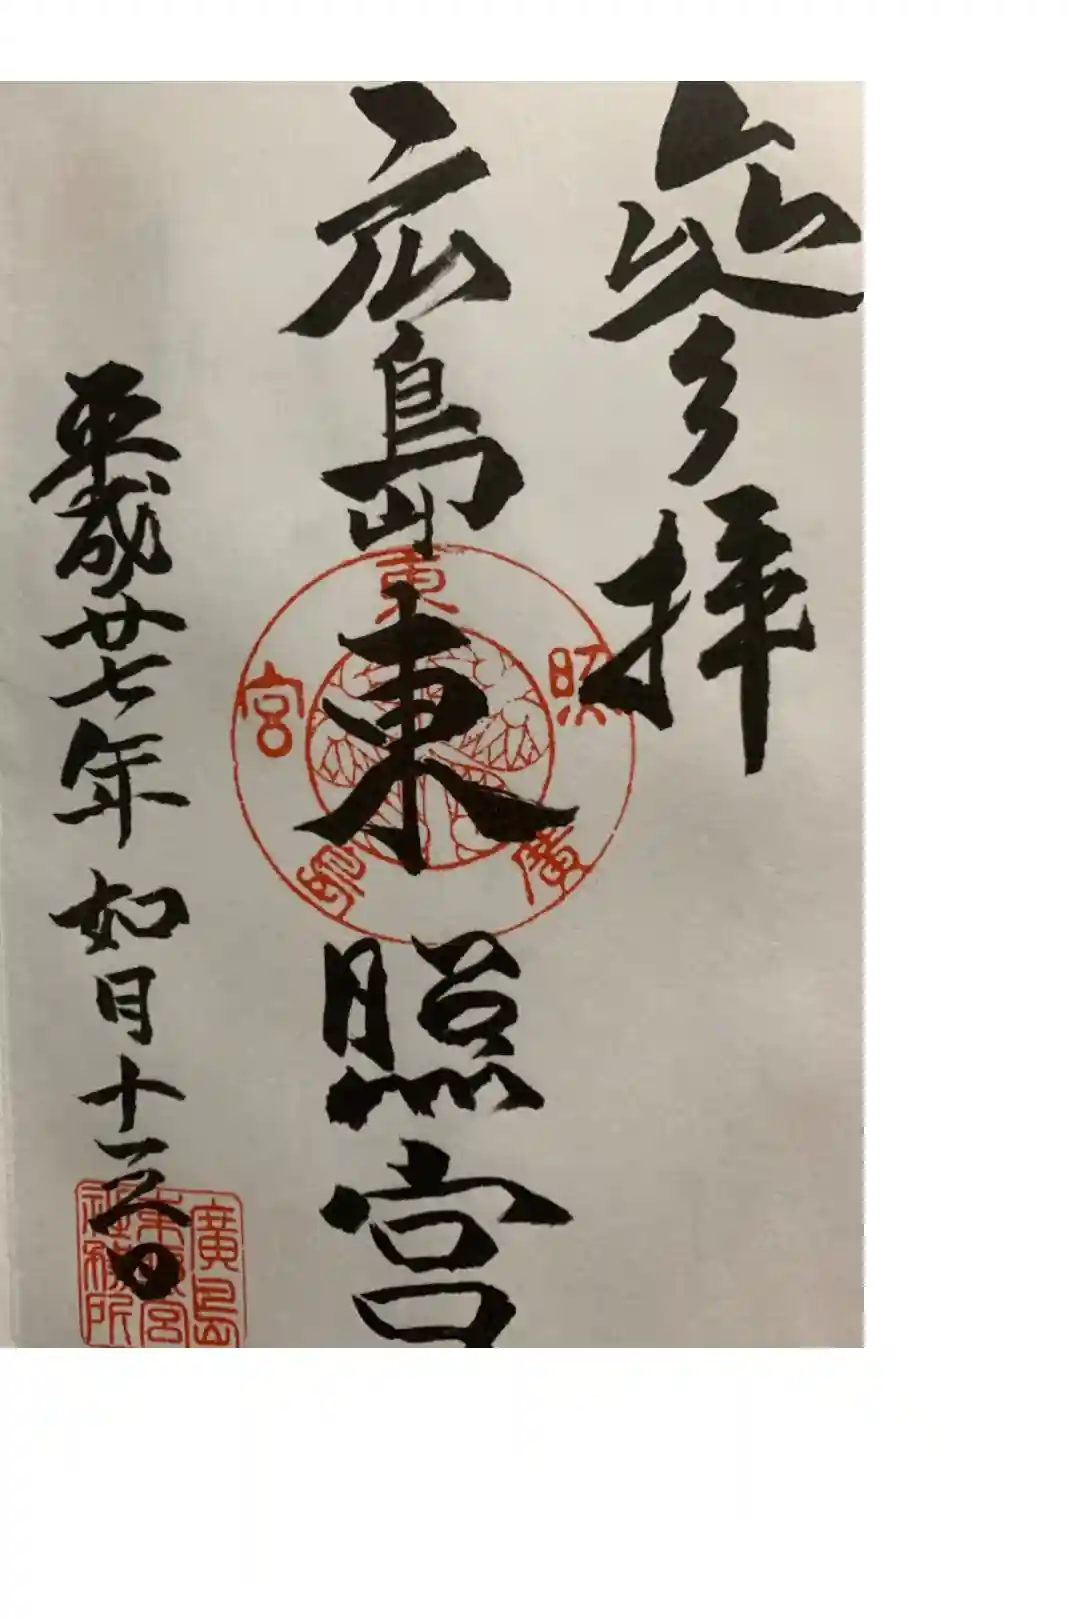 參拝
広島東照宮
平成廿七年如月十三日
廣島東照宮
廣島
東照宮
社務所